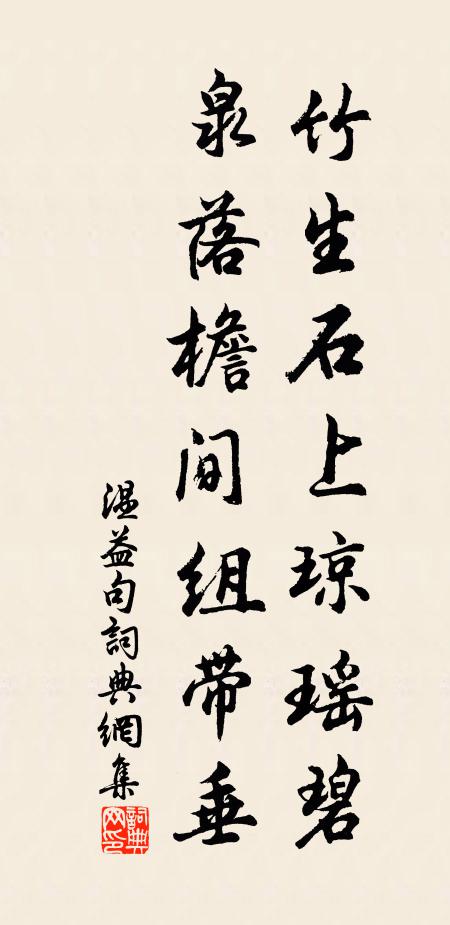 竹生石上琼瑶碧
泉落檐间组带垂
温益句詞典網集
詞典
网印